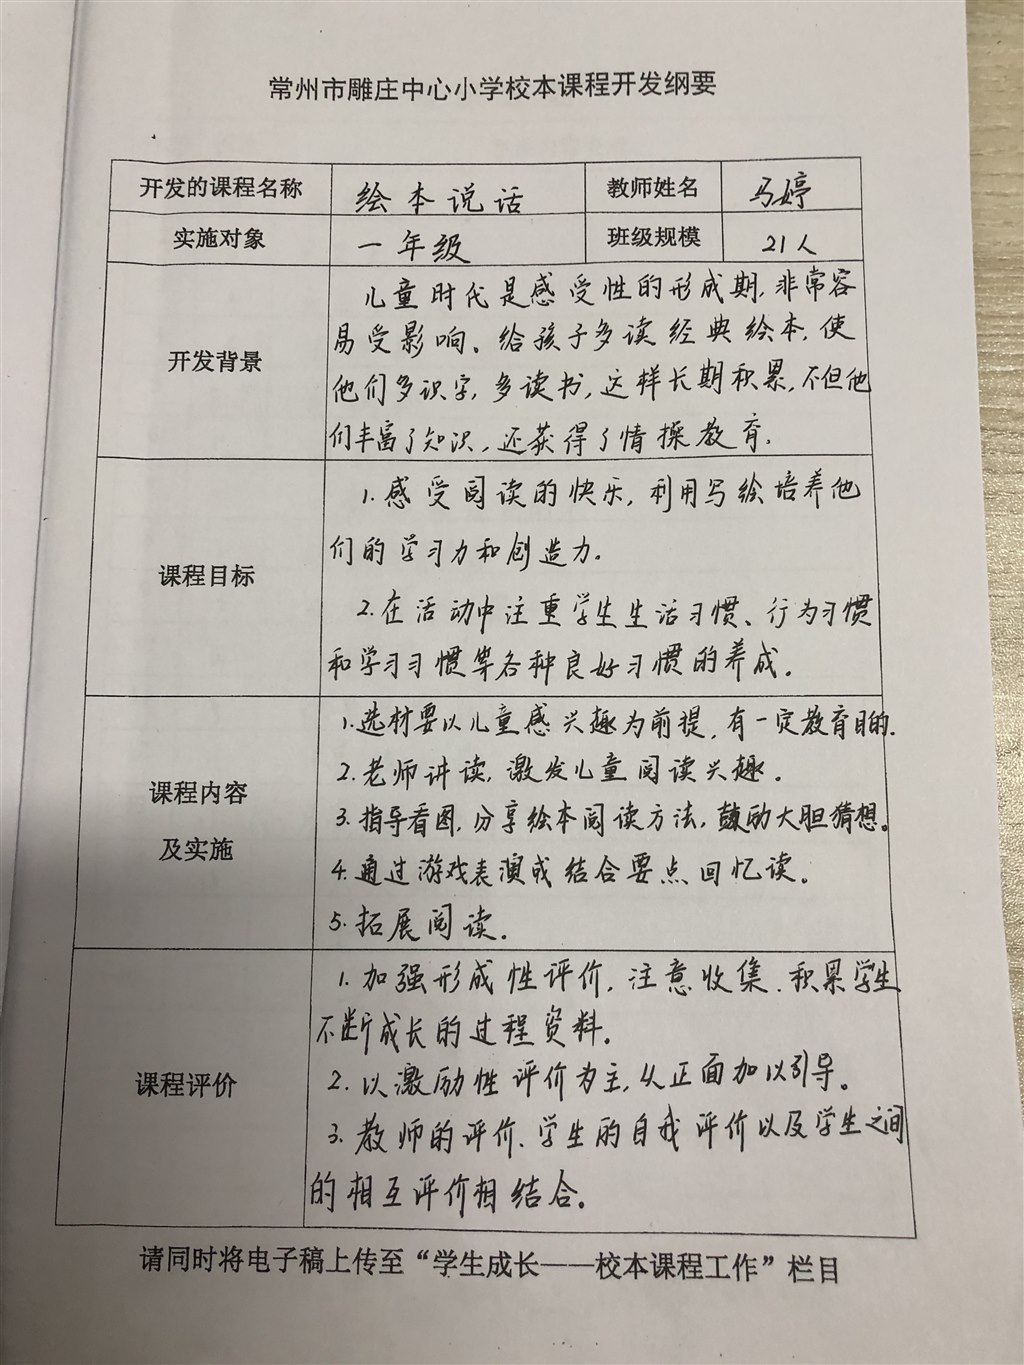 常州市雕庄中心小学校本课程开发纲要
开发的课程名称 绘本说话 教师姓名 马婷
实施对象 一年级 班级规模 21人
开发背景
儿童时代是感受性的形成期,非常容
易受影响。给孩子多读经典绘本,使
他们多识字,多读书,这样长期积累,不但他
们丰富了知识,还获得了情操教育.
课程目标
1.感受阅读的快乐,利用写绘培养他
们的学习力和创造力.
2.在活动中注重学生生活习惯、行为习惯
和学习习惯等各种良好习惯的养成.
课程内容
及实施
1.选材要以儿童感兴趣为前提,有一定教育目的.
2.老师讲读,激发儿童阅读兴趣.
3.指导看图,分享绘本阅读方法,鼓励大胆猜想。
4.通过游戏表演或结合要点回忆读.
5.拓展阅读.
课程评价
1.加强形成性评价,注意收集、积累学生
不断成长的过程资料.
2.以激励性评价为主,从正面加以引导。
3.教师的评价、学生的自我评价以及学生之间
的相互评价相结合.
请同时将电子稿上传至“学生成长——校本课程工作”栏目